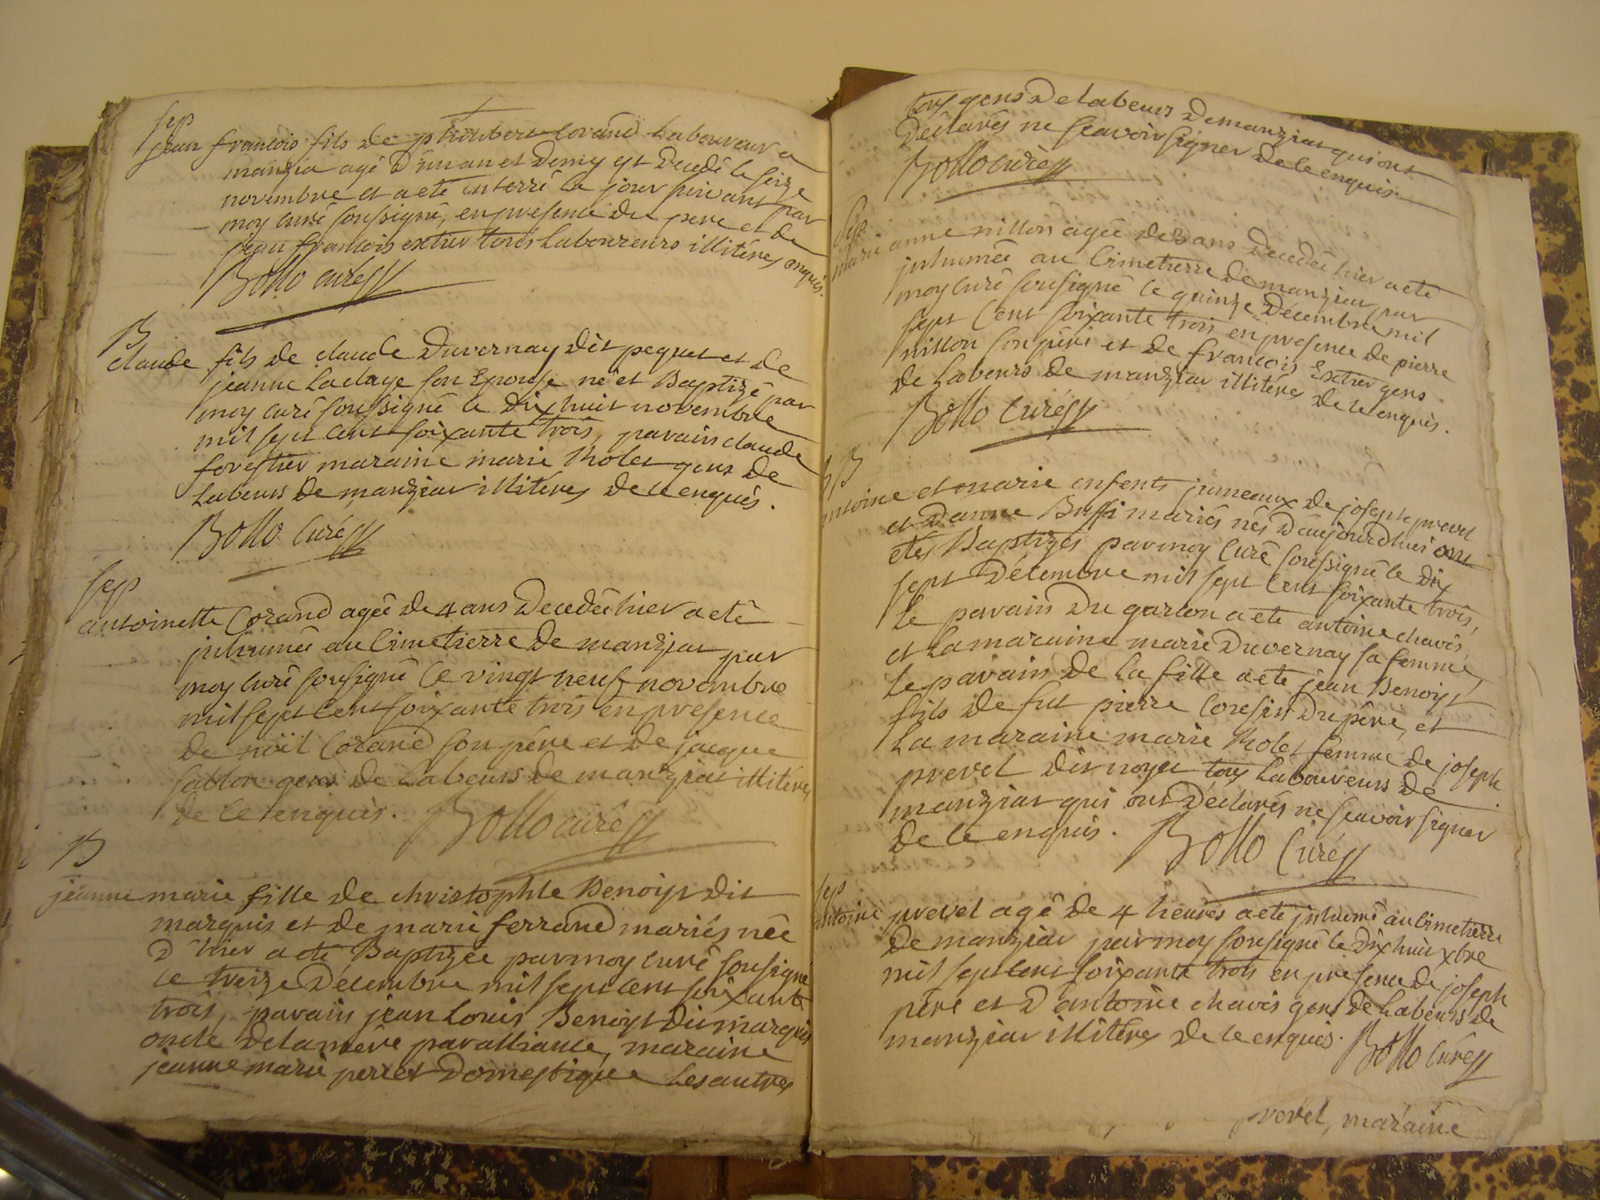 sep
jean francois fils de philibert Corand Laboureur a
manzia agé d'un an et demy est decedé le seize
novembre et a eté interré le jour suivant par
moy curé soussigné, en presence du pere et de
jean francois extier tous laboureurs illitéres enquis.
Bollo curé
B
claude fils de claude Duvernay dit pequet et de
jeanne Laclaye son Epouse né et Baptizé par
moy curé soussigné le dix huit novembre
mil sept cent soixante trois, parain claude
forestier maraine marie Kolet gens de
Labeurs de manziat illitéres de ce enquis.
Bollo Curé
sep
antoinette Corand agée de 4 ans Decedée hier a eté
inhumée au Cimetierre de manziat par
moy curé sousigné le vingt neuf novembre
mil sept cent soixante trois en presence
de noël Corand son pére et de jacque
sablon gens de Labeurs de manziat illitéres
de ce enquis. Bollo curé
B
jeanne marie fille de christophle Benoist dit
marquis et de marie ferrand mariés née
d'hier a eté Baptizée par moy curé sousigné
le treize Décembre mil sept cent soixante
trois, parain jean Louis Benoist dit marquis
oncle de la mére par alliance, maraine
jeanne marie perret Domestique les autres
tous gens de labeurs de manziat qui ont
déclarés ne sçavoir signer de ce enquis.
Bollo curé
sep
marie anne nillon agée de 3 ans decedée hier a eté
inhumée au Cimetierre de manziat par
moy curé sousigné le quinze Décembre mil
sept cent soixante trois en presence de pierre
nillon son pére et de francois extier gens
de Labeurs de manziat illitéres de ce enquis.
Bollo Curé
B B
antoine et marie enfents jumeaux de joseph prevel
et d'anne Buffi mariés nés d'aujourdhui ont
etés Baptizés par moy curé soussigné le dix
sept Décembre mil sept cent soixante trois,
le parain du garcon a eté antoine chavis,
et la maraine marie Duvernay sa femme,
le parain de la fille a eté jean Benoist
fils de fut pierre Cousin du pére, et
la maraine marie Kolet femme de joseph
prevel dit noyer tous Laboureurs de
manziat qui ont déclarés ne sçavoir signer
de ce enquis. Bollo Curé
sep
antoine prevel agé de 4 heures a eté inhumé au cimetierre
de manziat par moy sousigné le dix huit xbre
mil sept cent soixante trois en presence de joseph
pére et d'antoine chavis gens de Labeurs de
manziat illitéres de ce enquis. Bollo Curé
prevel, maraine